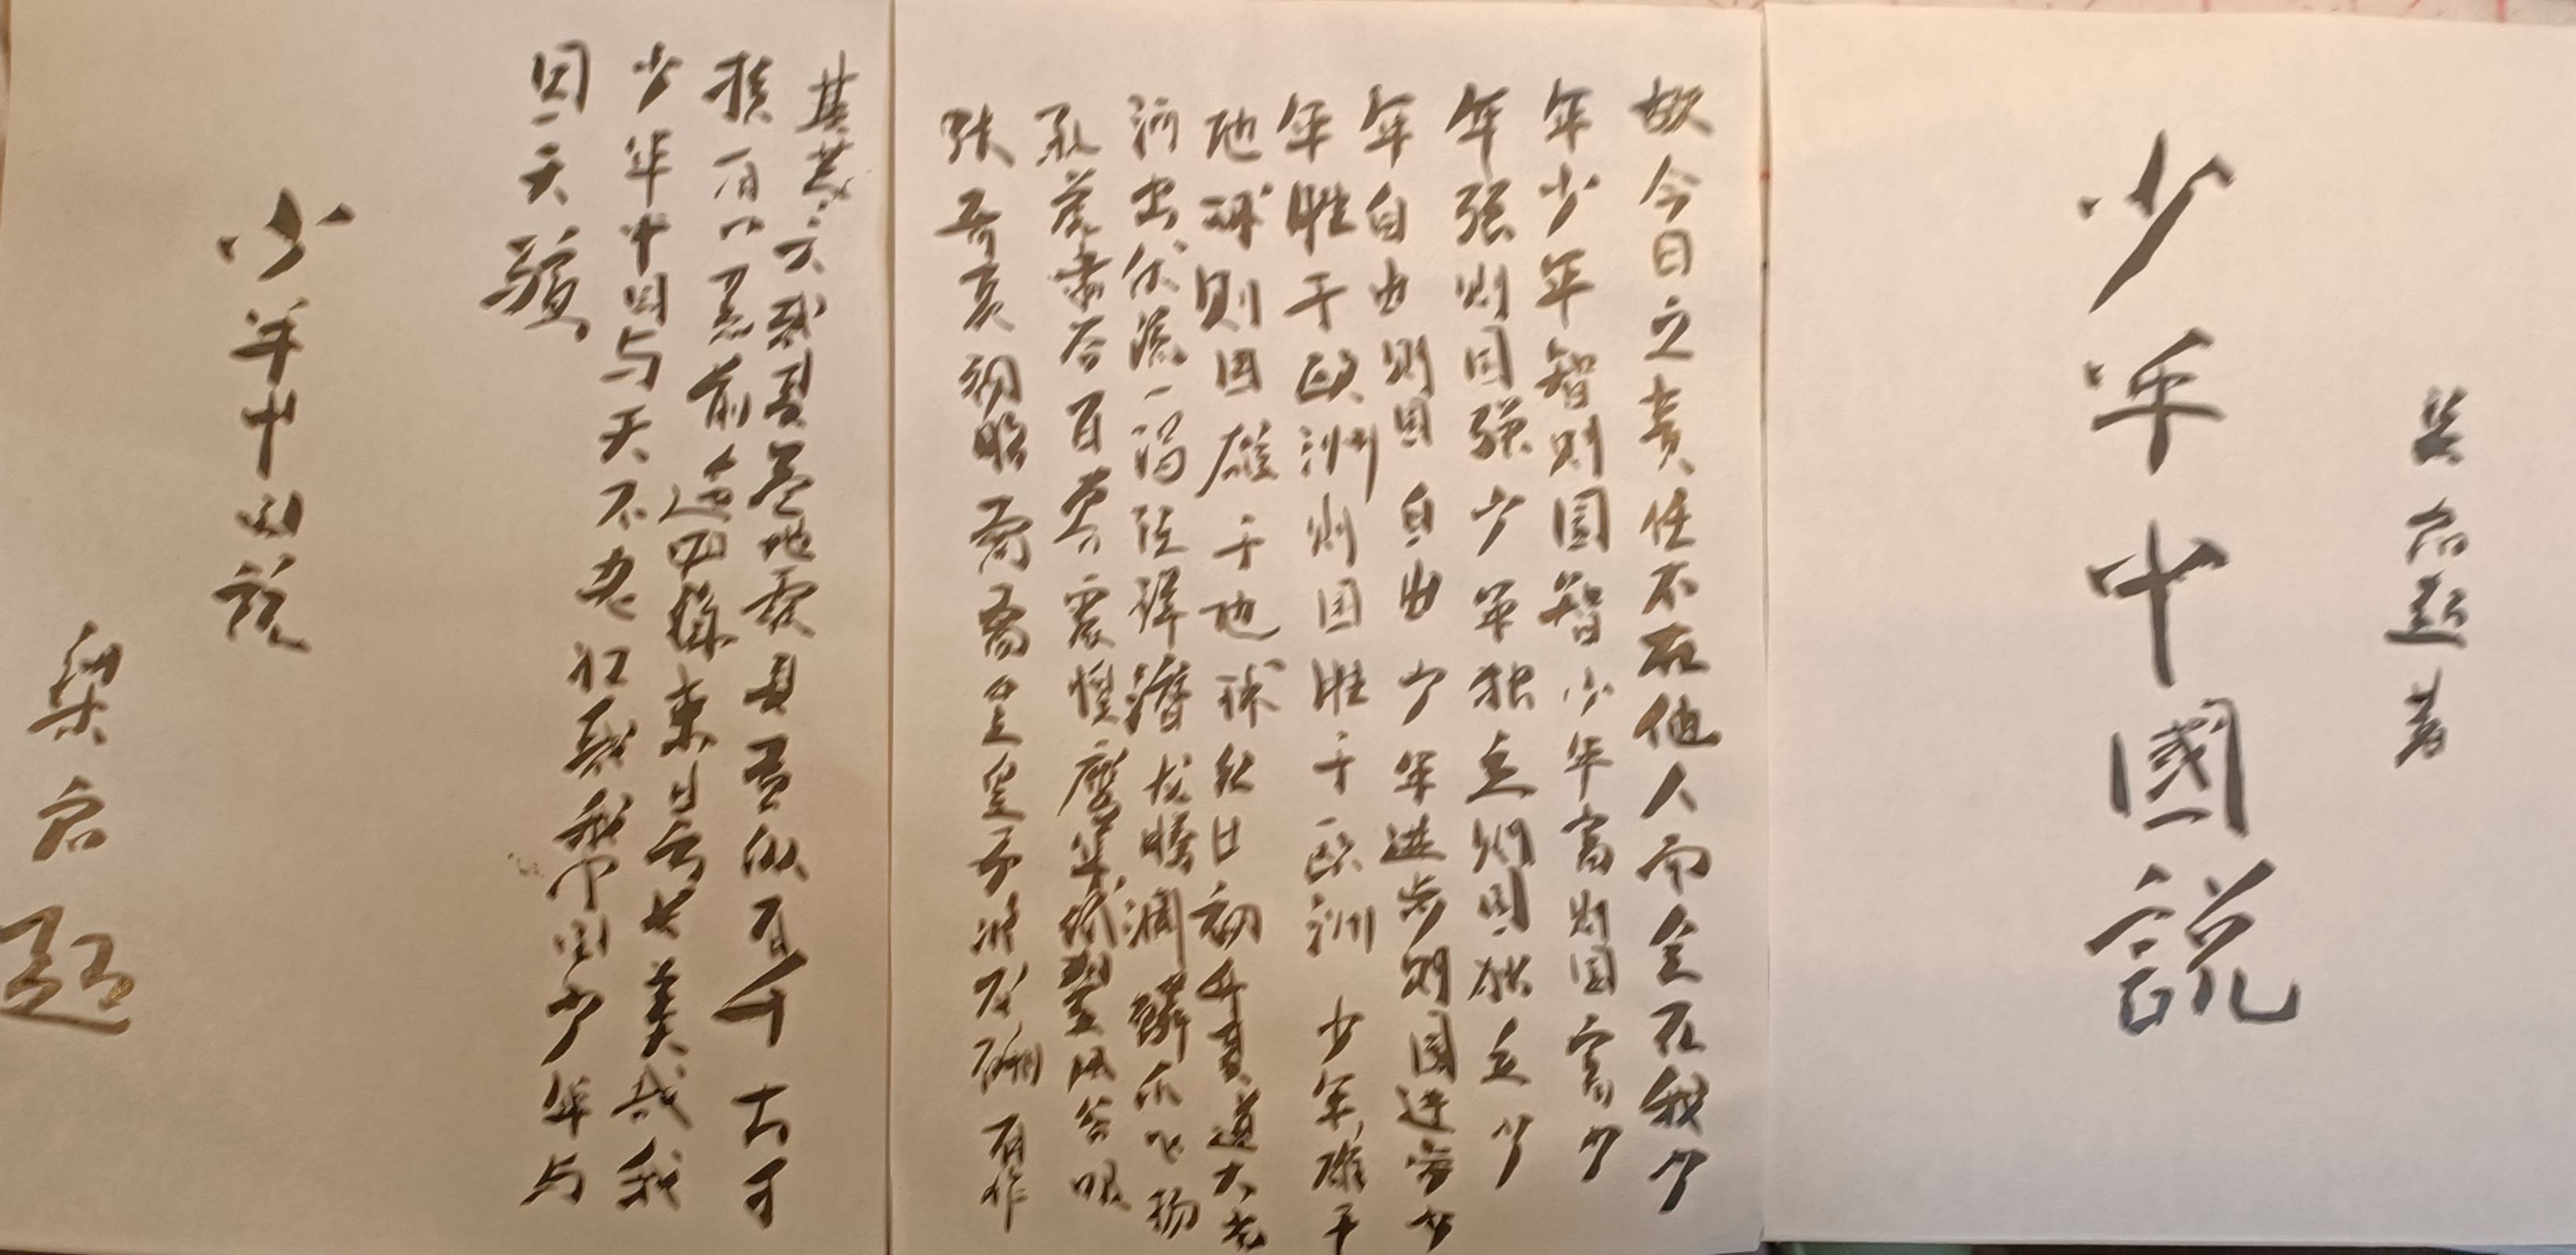 梁启超著
少年中國説
故今日之责任不在他人而全在我少
年少年智则国智少年富则国富少
年强则国强少年独立则国独立少
年自由则国自由少年进步则国进步少
年胜于欧洲则国胜于欧洲少年雄于
地球则国雄于地球红日初升其道大光
河出伏流一泻汪洋潜龙腾渊鳞爪飞扬
乳虎啸谷百兽震惶鹰隼试翼风尘吸
张奇花初胎矞矞皇皇干将发硎有作
其芒天戴其苍地履其黄纵有千古
横有八荒前途似海来日方长美哉我
少年中国与天不老壮哉我中国少年与
国无疆
少年中国说
梁启超